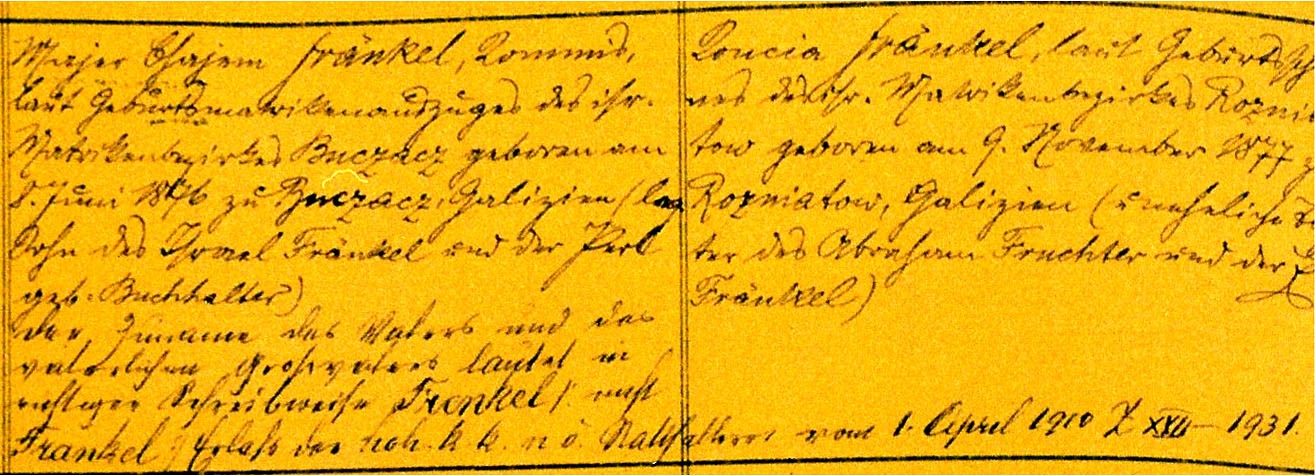 Majer Chajem Fränkel, Kommis,
laut Geburtsmatrikenauszuges des isr.
Matrikenbezirkes Buczacz geboren am
8. Juni 1876 zu Buczacz, Galizien (leg.
Sohn des Israel Fränkel und der Perl
geb. Buchhalter)
Der Zuname des Vaters und des
väterlichen Großvaters lautet in
richtiger Schreibweise Frenkel /: nicht
Frankel :/ Erlaß der hoh. k. k. n. ö. Statthalterei vom 1. April 1910 Z XVII - 1931.
Roncia Fränkel, laut Geburtssch
nes des isr. Matrikenbezirkes Roznia
tow geboren am 9. November 1877
Rozniatow, Galizien (uneheliche
ter des Abraham Fruchter und der
Fränkel)